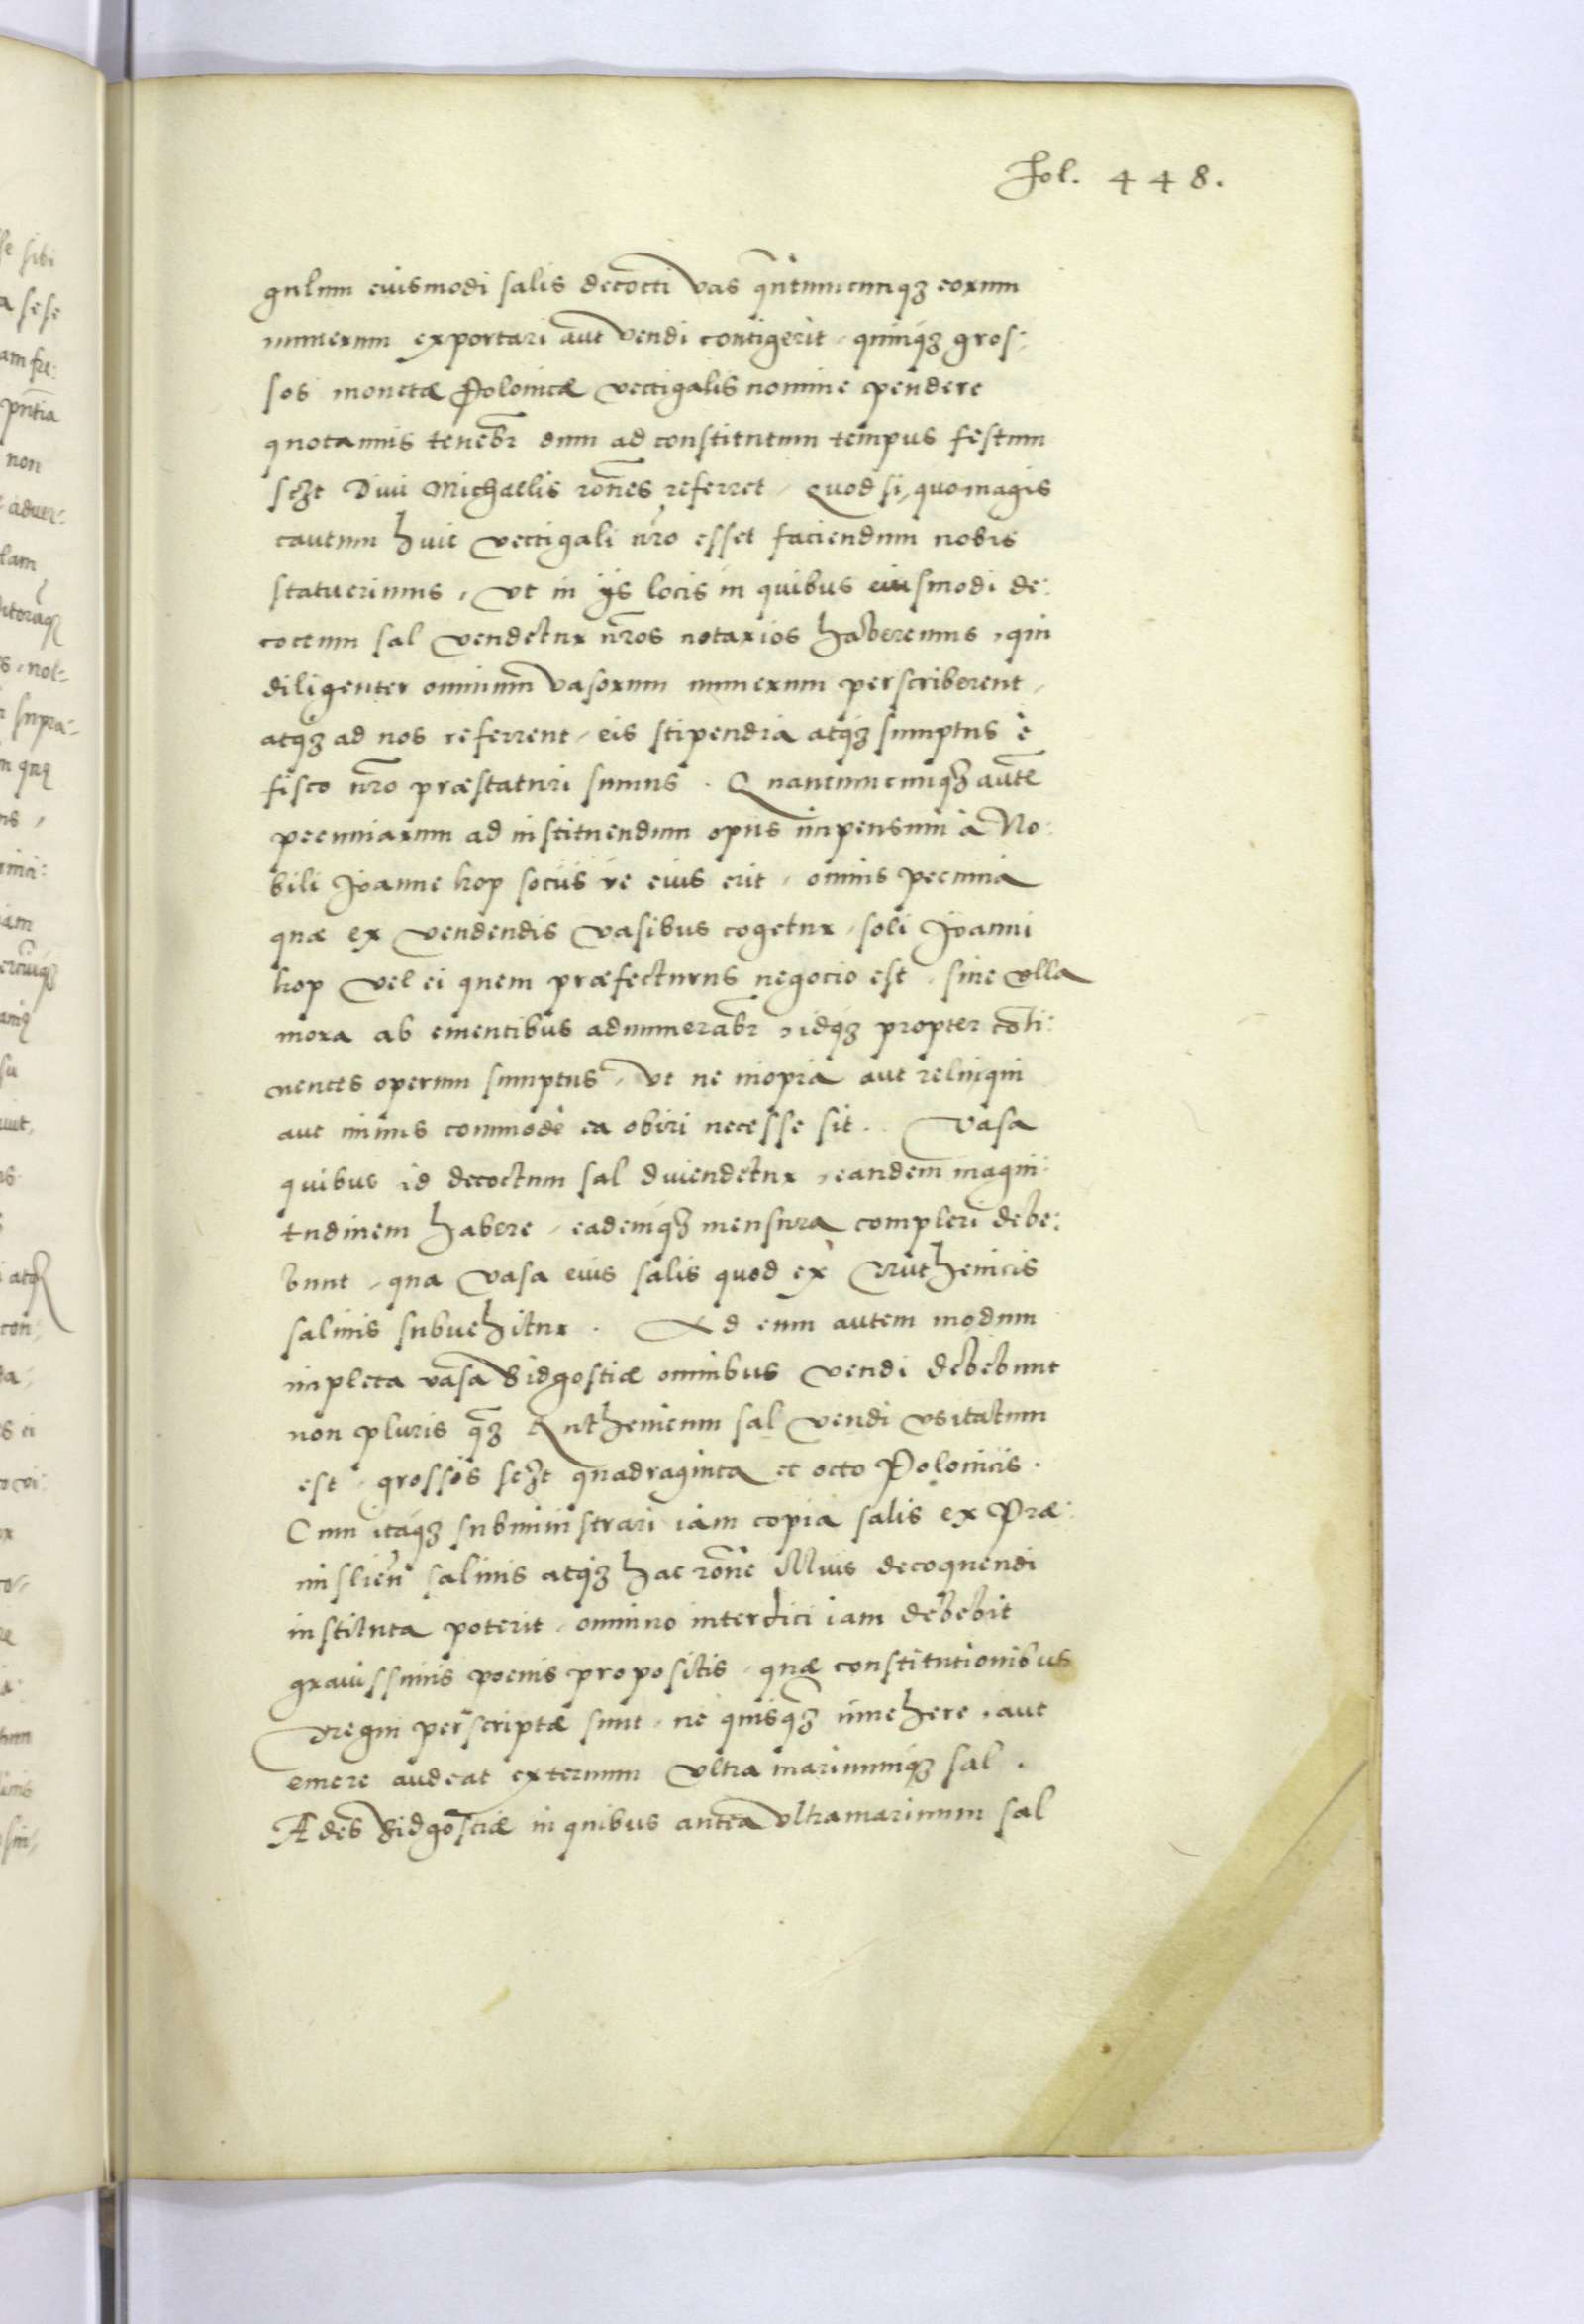 Fol. 448.
gulum eiusmodi salis decocti vas qñtumcunqȝ eorum
numerum exportari aut vendi contigerit, quinqȝ gros:
sos monetæ Polonicæ vectigalis nomine pendere
quotannis tenebr dum ad constitutum tempus festum
sczt Diui Michaelis rones referret, Quod si, quo magis
cautum huic vectigali nro esset faciendum nobis
statuerimus, vt in ijs locis in quibus eiusmodi de:
coctum sal vendetur nros notarios haberemus, qui
diligenter omnium vasorum numerum perscriberent,
atqȝ ad nos referrent, eis stipendia atqȝ sumptus è
fisco nro præstaturi sumus. Quantumcunqȝ aute
pecuniarum ad instituendum opus impensum à No:
bili Joanne hop socijs ve eius erit, omnis pecunia
quæ ex vendendis vasibus cogetur, soli Joanni
hop vel ei quem præfecturus negocio est, sine vlla
mora ab ementibus adnumerabr, idqȝ propter conti:
nentes operum sumptus, vt ne inopia aut relinqui
aut minus commodè ea obiri necesse sit. Vasa
quibus id decoctum sal diuendetur, eandem magni:
tudinem habere, eademqȝ mensura compleri debe:
bunt, qua vasa eius salis quod ex Ruthenicis
salinis subuehitur. Ad eum autem modum
impleta vasa Bidgostiæ omnibus vendi debebunt
non pluris qȝ Ruthenicum sal vendi vsitatum
est, grossos sczt quadraginta et octo Polonicis.
Cum itaqȝ subministrari iam copia salis ex Præ:
mislien salinis atqȝ hac rone illius decoquendi
instituta poterit, omnino interdici iam debebit
grauissimis poenis propositis, quæ constitutionibus
Regni perscriptæ sunt, ne quisqȝ inuehere, aut
emere audeat externum vltra marinumqȝ sal.
Ædes Bidgostiæ in quibus antea vltramarinum sal